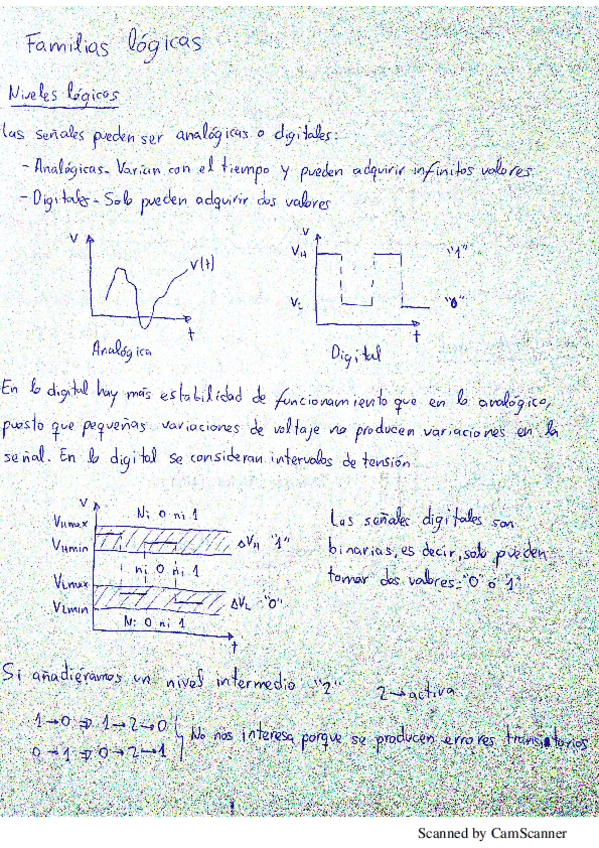 Familias lógicas
Niveles lógicos
Las señales pueden ser analógicas o digitales:
- Analógicas- Varían con el tiempo y pueden adquirir infinitos valores
- Digitales- Solo pueden adquirir dos valores
V
V(t)
t
Analógica
V
VH
"1"
VL
"0"
t
Digital
En lo digital hay más estabilidad de funcionamiento que en lo analógico,
puesto que pequeñas variaciones de voltaje no producen variaciones en la
señal. En lo digital se consideran intervalos de tensión
V
Ni 0 ni 1
VHmax
VHmin
ΔVH "1"
ni 0 ni 1
VLmax
VLmin
ΔVL "0"
Ni 0 ni 1
t
Las señales digitales son
binarias, es decir, solo pueden
tomar dos valores: "0" ó "1"
Si añadiéramos un nivel intermedio "2"
2→activa
1→0 ⇒ 1→2→0
0→1 ⇒ 0→2→1
No nos interesa porque se producen errores transitorios
Scanned by CamScanner